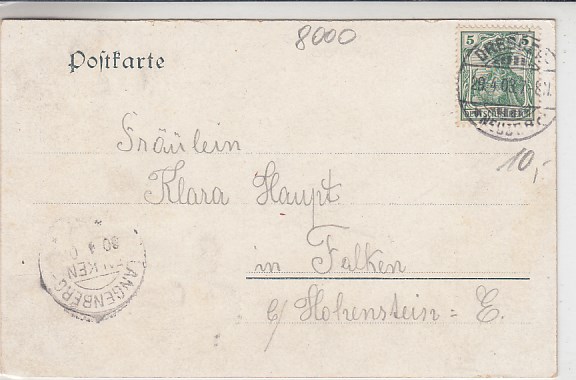 8000
Postkarte
5
DRESDEN
29.4.03.7-8N.
DEUTSCHES REICH
NEUST.
10,-
Fräulein
Klara Haupt
in Falken
b/ Hohenstein=E.
30 4 0
FALKEN
LANGENBERG